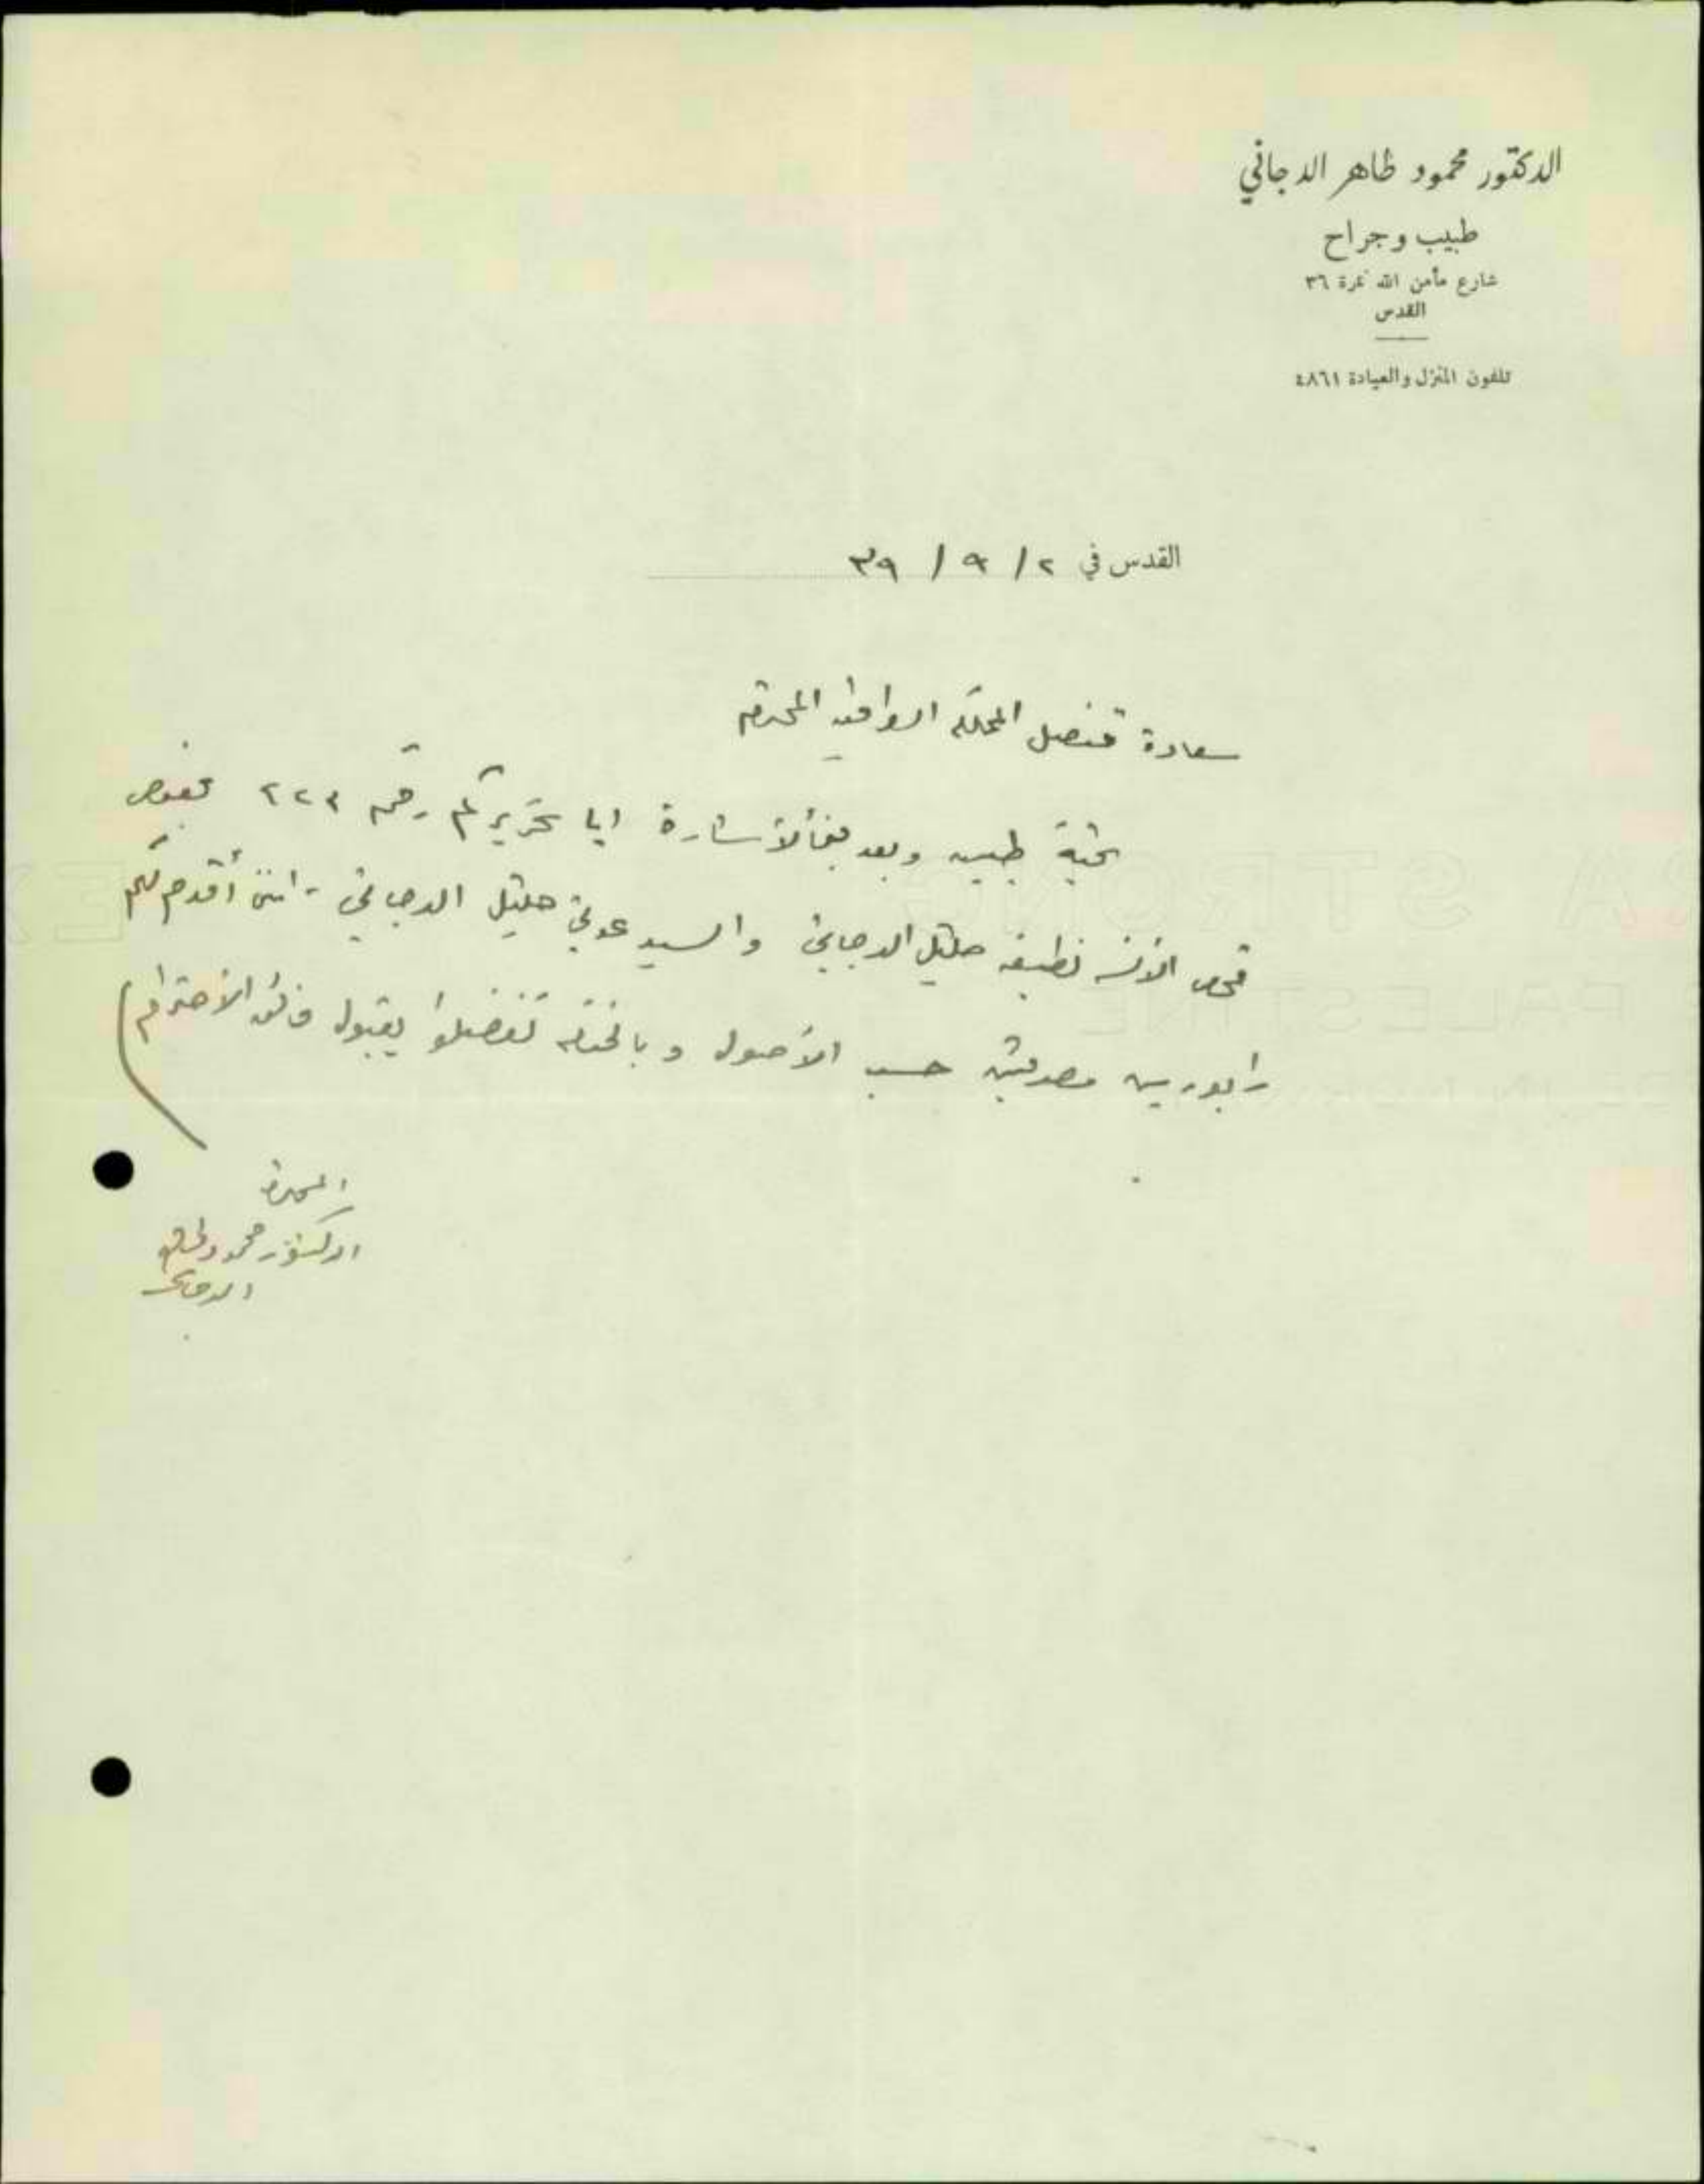 الدكتور محمود طاهر الدجاني
طبيب وجراح
شارع مأمن الله نمرة ٣٦
القدس
تلفون المنزل والعيادة ٤٨٦١
القدس في ٢ / ٩ / ٣٩
سعادة قنصل المملكة العراقية المحترم
تحية طيبة وبعد فبالأشارة الى تحريركم رقم بخصوص
فحص الآنسة نظيفة خليل الدجاني والسيد عوني خليل الدجاني - انني أقدم لكم
رابورين مصدقين حسب الأصول وبالختام تفضلوا بقبول فائق الأحترام
الدكتور محمود طاهر
الدجاني